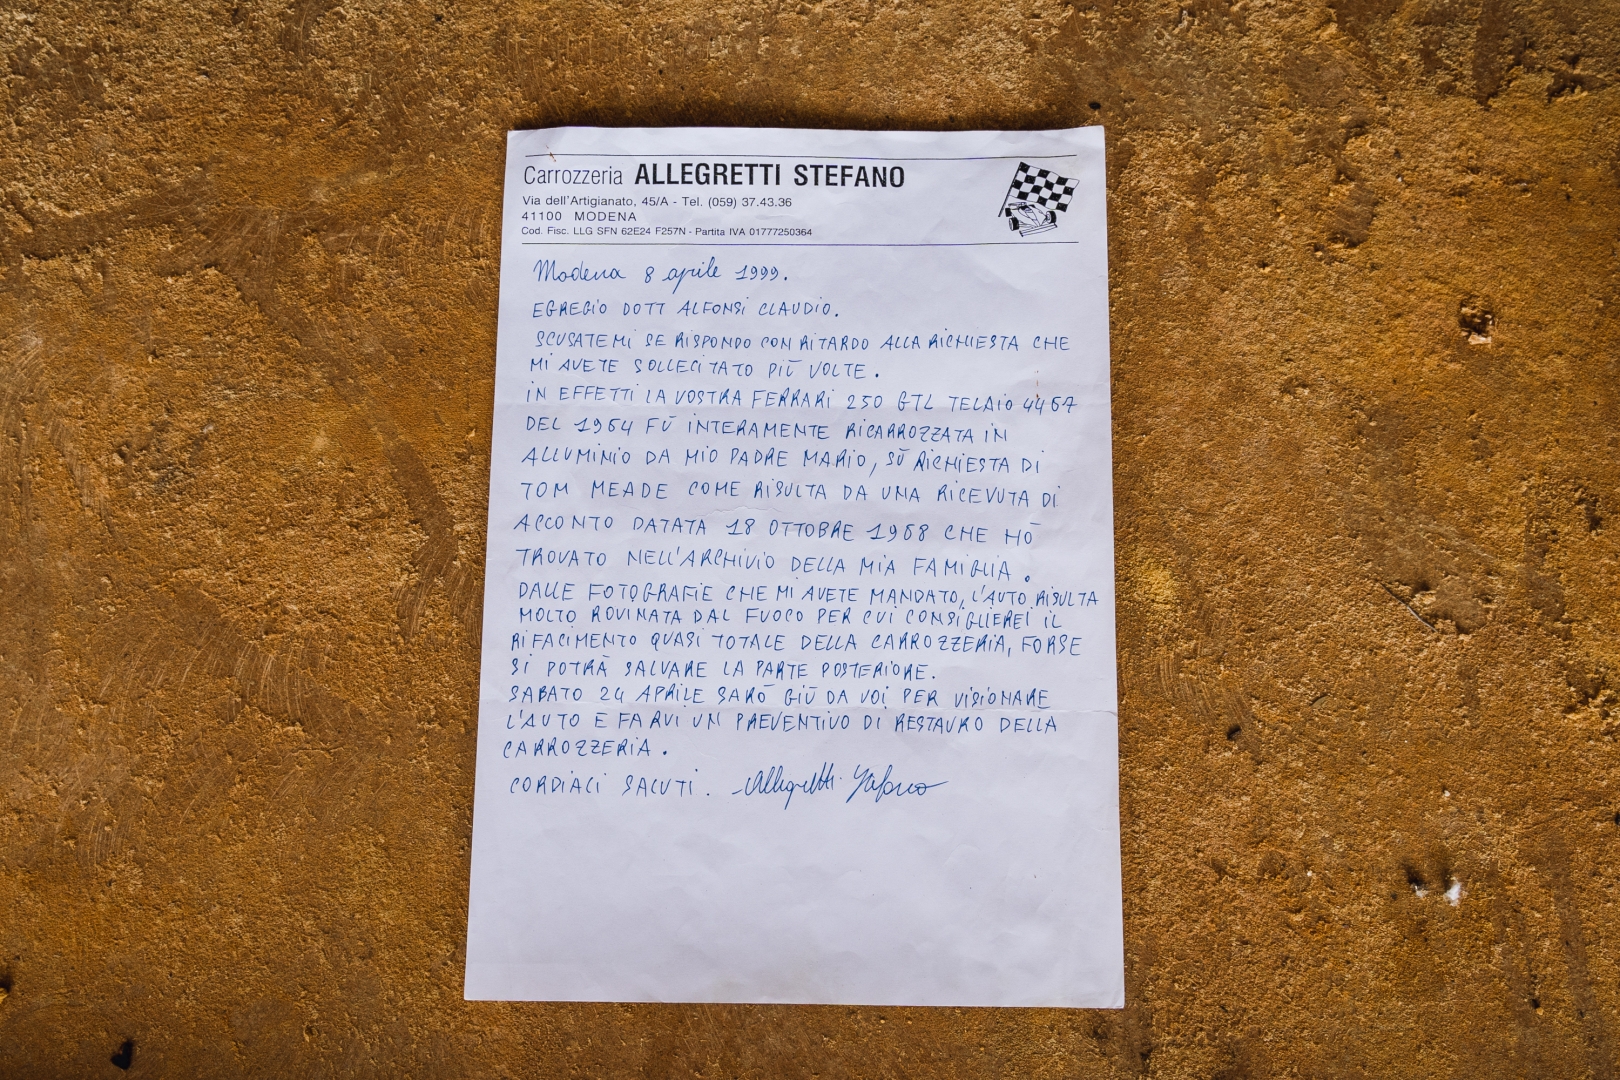 Carrozzeria ALLEGRETTI STEFANO
Via dell'Artigianato, 45/A - Tel. (059) 37.43.36
41100 MODENA
Cod. Fisc. LLG SFN 62E24 F257N - Partita IVA 01777250364
Modena 8 aprile 1999.
EGREGIO DOTT ALFONSI CLAUDIO.
SCUSATEMI SE RISPONDO CON RITARDO ALLA RICHIESTA CHE
MI AVETE SOLLECITATO PIÙ VOLTE.
IN EFFETTI LA VOSTRA FERRARI 250 GTL TELAIO 4467
DEL 1964 FÙ INTERAMENTE RICARROZZATA IN
ALLUMINIO DA MIO PADRE MARIO, SÙ RICHIESTA DI
TOM MEADE COME RISULTA DA UNA RICEVUTA DI
ACCONTO DATATA 18 OTTOBRE 1968 CHE HÒ
TROVATO NELL'ARCHIVIO DELLA MIA FAMIGLIA.
DALLE FOTOGRAFIE CHE MI AVETE MANDATO, L'AUTO RISULTA
MOLTO ROVINATA DAL FUOCO PER CUI CONSIGLIEREI IL
RIFACIMENTO QUASI TOTALE DELLA CARROZZERIA, FORSE
SI POTRÀ SALVARE LA PARTE POSTERIORE.
SABATO 24 APRILE SARÒ GIÙ DA VOI PER VISIONARE
L'AUTO E FARVI UN PREVENTIVO DI RESTAURO DELLA
CARROZZERIA.
CORDIALI SALUTI. Allegretti Stefano